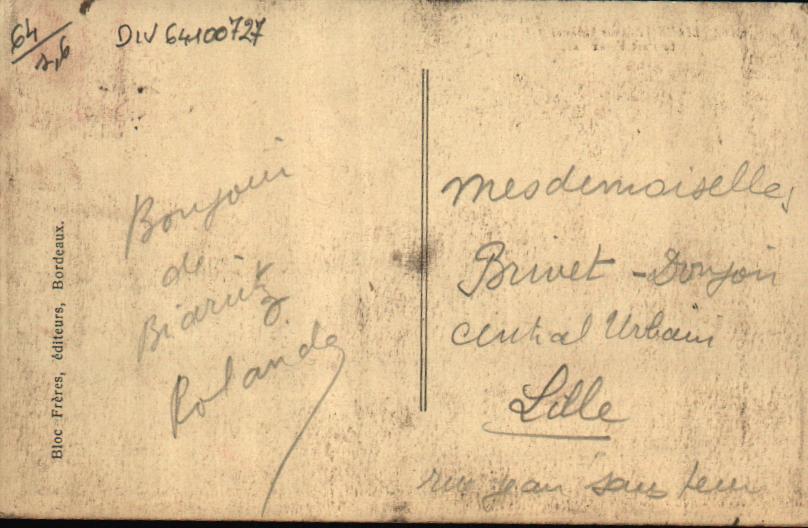 64
DIV 64100727
Bloc Frères, éditeurs, Bordeaux.
Bonjour
de
Biaritz
Rolande
Mesdemoiselles
Brivet - Donjon
Central Urbain
Lille
rue jean sans peur